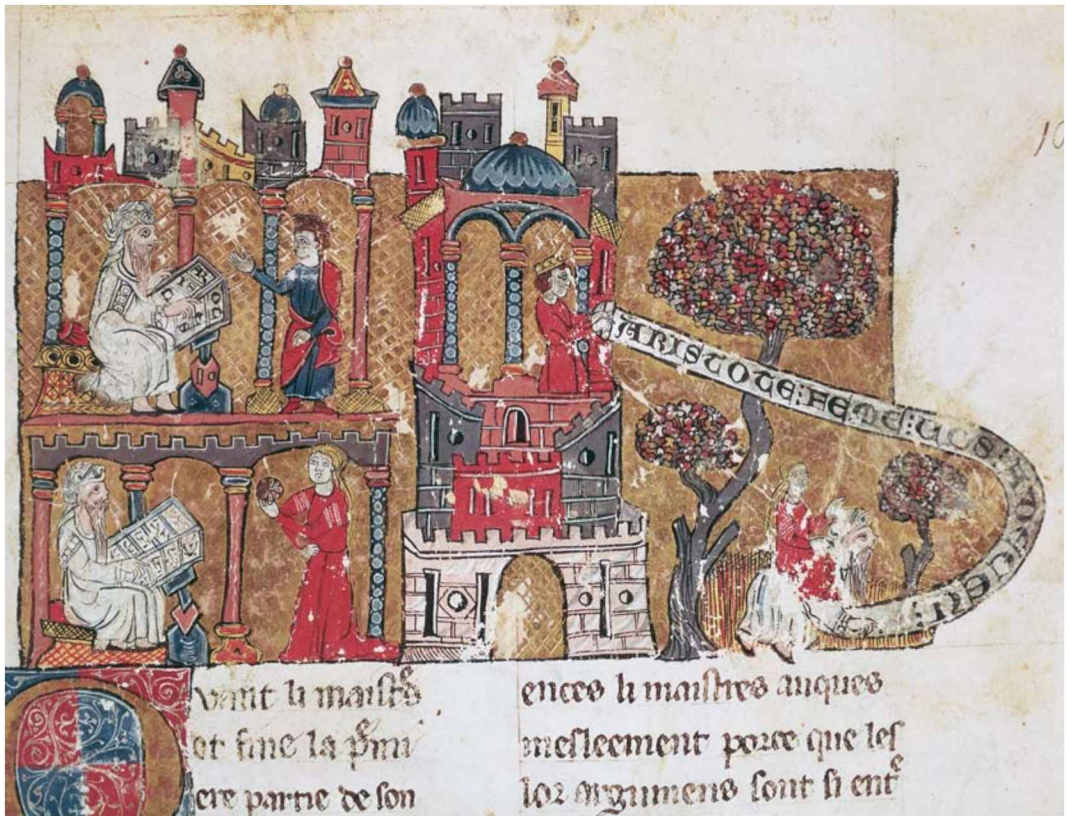 ARISTOTE : FEME : VOS :
uant li maistres
ot fine la p̃mi
ere partie de son
ences li maistres auques
mesleement porce que les
lor argumens sont si ent
10